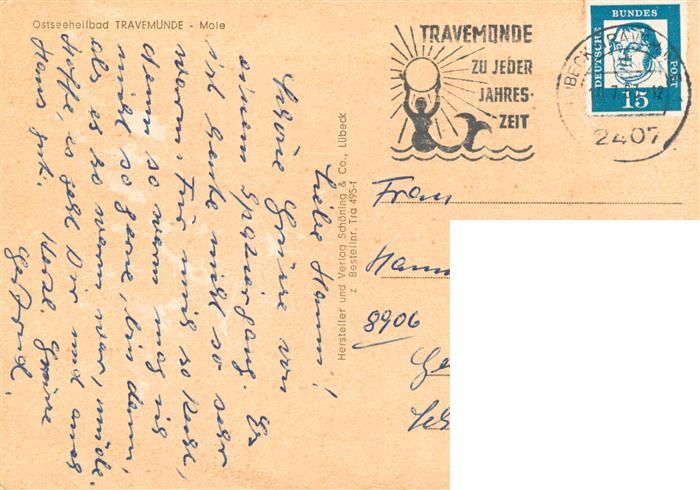 Ostseeheilbad TRAVEMÜNDE - Mole
TRAVEMÜNDE
ZU JEDER
JAHRES-
ZEIT
DEUTSCHE BUNDES POST
15
LÜBECK-TRAVEMÜ
7.67.-12
2407
Liebe Hanni!
Schöne Grüße von
einem Spaziergang. Es
ist heute nicht so sehr
warm. Für mich so recht,
denn so warm mag ich
nicht so gerne, bin dann,
als es so warm war, müde.
Hoffe, es geht Dir und auch
Hans gut.
Herzl. Grüsse
Gertrud.
Hersteller und Verlag Schöning & Co., Lübeck
z Bestellnr. Tra 495-f
Frau
Hann
8906
Ge